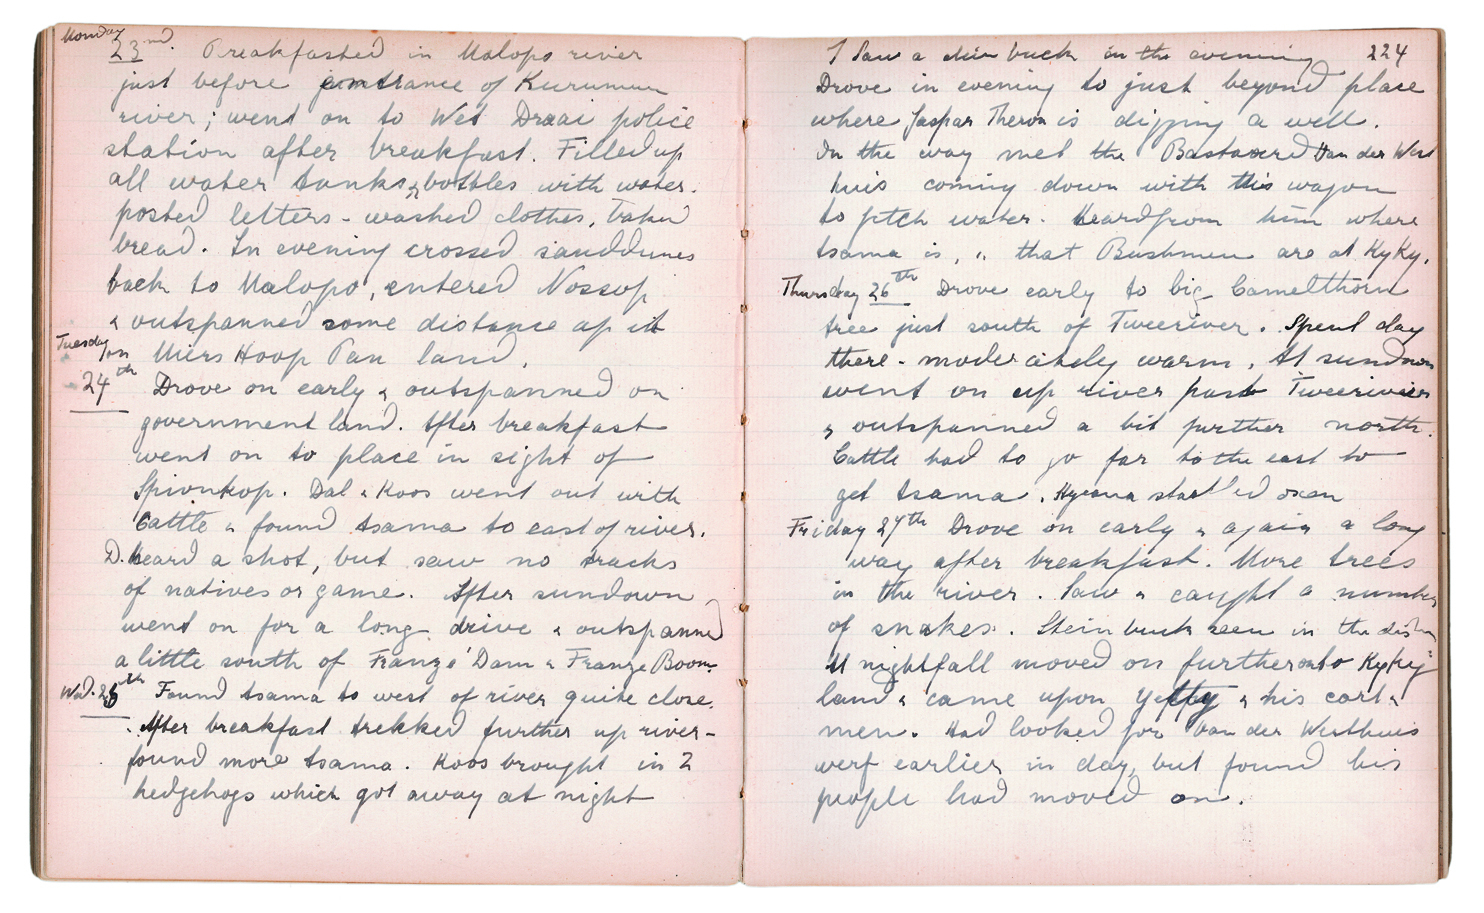 Monday
23nd. Breakfasted in Malopo river
just before entrance of Kuruman
river; went on to Wet Draai police
station after breakfast. Filled up
all water tanks & bottles with water.
posted letters - washed clothes, baked
bread. In evening crossed sanddunes
back to Malopo, entered Nossop
& outspanned some distance up it
Tuesday on Miers Hoop Pan land.
24th Drove on early & outspanned on
government land. After breakfast
went on to place in sight of
Spionkop. Dal & Koos went out with
Cattle & found tsama to east of river.
D. heard a shot, but saw no tracks
of natives or game. After sundown
went on for a long drive & outspanned
a little south of Franze' Dam & Franze Boom.
Wed. 25th Found tsama to west of river quite close.
After breakfast trekked further up river-
found more tsama. Koos brought in 2
hedgehogs which got away at night
I saw a buck in the evening 224
Drove in evening to just beyond place
where Jaspar Theron is digging a well.
On the way met the Bastaard Van der West
huis coming down with his wagon
to fetch water. Heard from him where
tsama is, " that Bushmen are at KyKy.
Thursday 26th Drove early to big Camelthorn
tree just south of Tweeriver. Spent day
there - moderately warm. At sundown
went on up river past Tweerivier
& outspanned a bit further north.
Cattle had to go far to the east to
get tsama. Hyaena startled oxen
Friday 27th Drove on early & again a long
way after breakfast. More trees
in the river. Saw & caught a number
of snakes. Steinbuck seen in the distn
At nightfall moved on further onto KyKy
land & came upon & his cart &
men. Had looked for Van der Westhuis
werf earlier in day, but found his
people had moved on.